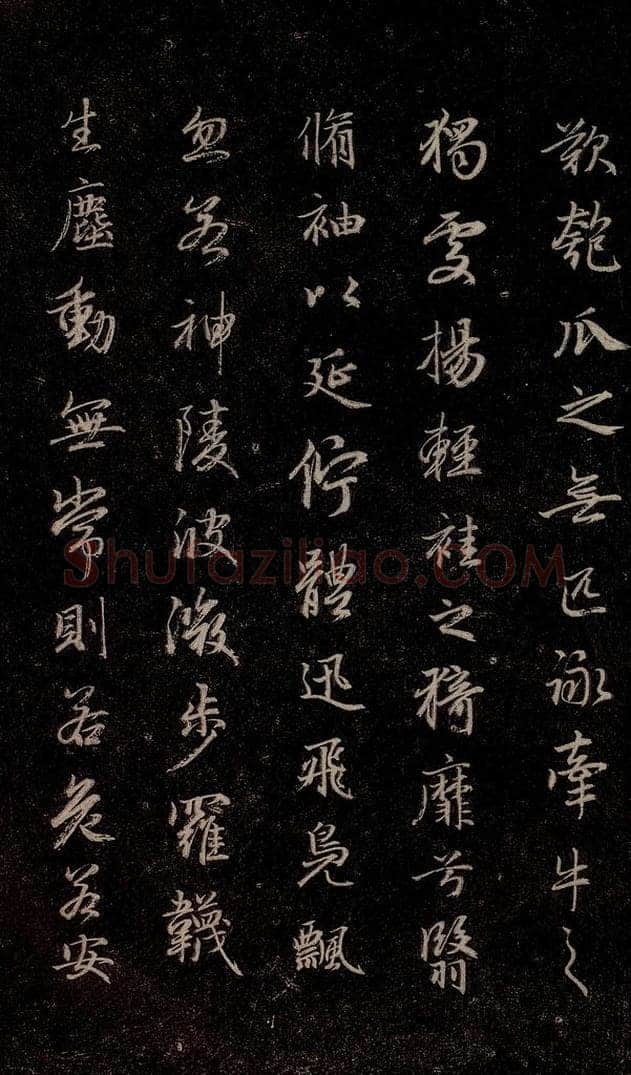 歎匏瓜之無匹詠牽牛之
獨處揚輕袿之猗靡兮翳
脩袖以延佇體迅飛鳧飄
忽若神陵波微步羅韤
生塵動無常則若危若安
Shufaziliao.COM